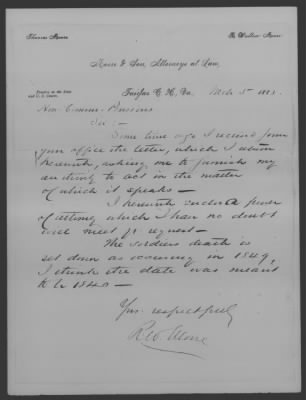 Thomas Moore
R. Walton Moore
Moore & Son, Attorneys at Law,
Practice in the State
and U. S. Courts.
Fairfax C. H., Va. Mch 5th 1883
Hon. Commr. Pensions
Sir :-
Some time ago I received from
your office the letter, which I return
herewith, asking me to furnish my
authority to act in the matter
of which it speaks —
I herewith enclose power
of attorney which I have no doubt
will meet yr request —
The soldiers death is
set down as occurring in 1849,
I think the date was meant
to be 1840 —
Yrs respectfully
R. W. Moore